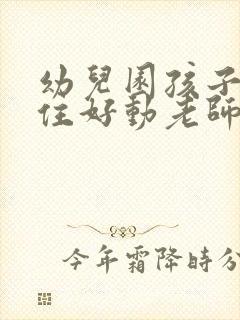 幼兒園孩子
住好動老師
今年霜降時分